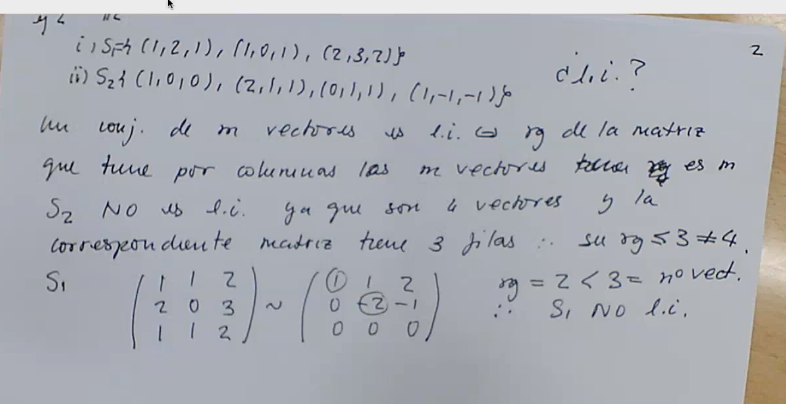 i) S₁={ (1,2,1), (1,0,1), (2,3,2)}
2
ii) S₂{ (1,0,0), (2,1,1), (0,1,1), (1,-1,-1)}
¿l.i.?
Un conj. de m vectores es l.i. ⇔ rg de la matriz
que tiene por columnas las m vectores es m
S₂ NO es l.i. ya que son 4 vectores y la
correspondiente matriz tiene 3 filas ∴ su rg ≤ 3 ≠ 4.
S₁ (1 1 2 / 2 0 3 / 1 1 2) ~ (1 1 2 / 0 -2 -1 / 0 0 0) rg = 2 < 3 = nº vect.
∴ S₁ NO l.i.